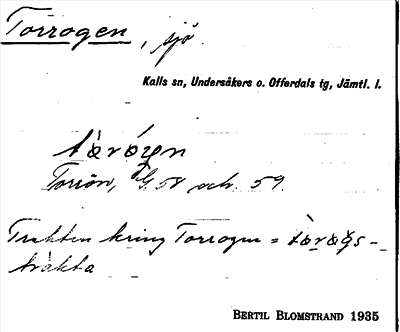 Torrogen, sjö.
Kalls sn, Undersåkers o. Offerdals tg, Jämtl. l.
tàrógen
Torrön, G. 58 och 59.
Trakten kring Torrogen = tàrògs-
trakta
BERTIL BLOMSTRAND 1935